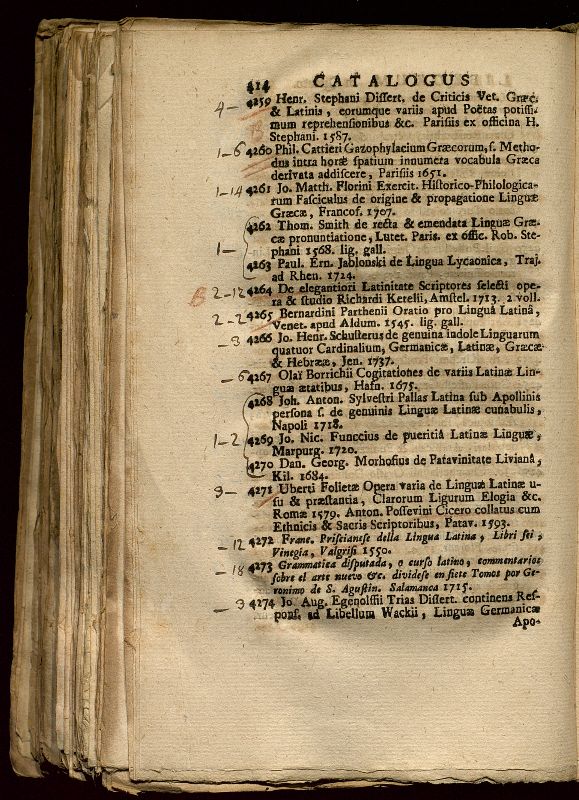 414 CATALOGUS
4 – 4259 Henr. Stephani Dissert. de Criticis Vet. Græc.
& Latinis, eorumque variis apud Poëtas potissi-
mum reprehensionibus &c. Parisiis ex officina H.
Stephani. 1587.
1 – 6 4260 Phil. Cattieri Gazophylacium Græcorum, s. Metho-
dus intra horæ spatium innumera vocabula Græca
derivata addiscere, Parisiis 1651.
1 – 14 4261 Jo. Matth. Florini Exercit. Historico-Philologica-
rum Fasciculus de origine & propagatione Linguæ
Græcæ, Francof. 1707.
4262 Thom. Smith de recta & emendata Linguæ Græ-
cæ pronuntiatione, Lutet. Paris. ex offic. Rob. Ste-
1 – phani 1568. lig. gall.
4263 Paul. Ern. Jablonski de Lingua Lycaonica, Traj.
ad Rhen. 1724.
B 2 – 12 4264 De elegantiori Latinitate Scriptores selecti ope-
ra & studio Richardi Ketelii, Amstel. 1713. 2 voll.
2 – 2 4265 Bernardini Parthenii Oratio pro Linguâ Latinâ,
Venet. apud Aldum. 1545. lig. gall.
– 3 4266 Jo. Henr. Schusterus de genuina indole Linguarum
quatuor Cardinalium, Germanicæ, Latinæ, Græcæ
& Hebrææ, Jen. 1737.
– 6 4267 Olaï Borrichii Cogitationes de variis Latinæ Lin-
guæ ætatibus, Hafn. 1675.
4268 Joh. Anton. Sylvestri Pallas Latina sub Apollinis
persona s. de genuinis Linguæ Latinæ cunabulis,
Napoli 1718.
1 – 2 4269 Jo. Nic. Funccius de pueritiâ Latinæ Linguæ,
Marpurg. 1720.
4270 Dan. Georg. Morhofius de Patavinitate Livianâ,
Kil. 1684.
3 – 4271 Uberti Folietæ Opera varia de Linguæ Latinæ u-
su & præstantia, Clarorum Ligurum Elogia &c.
Romæ 1579. Anton. Possevini Cicero collatus cum
Ethnicis & Sacris Scriptoribus, Patav. 1593.
– 12 4272 Franc. Priscianese della Lingua Latina, Libri sei,
Vinegia, Valgrisi 1550.
– 18 4273 Grammatica disputada, o curso latino, commentarios
sobre el arte nuevo &c. dividese en siete Tomos por Ge-
ronimo de S. Agustin. Salamanca 1715.
– 3 4274 Jo. Aug. Egenolffii Trias Dissert. continens Res-
pons. ad Libellum Wackii, Linguæ Germanicæ
Apo-